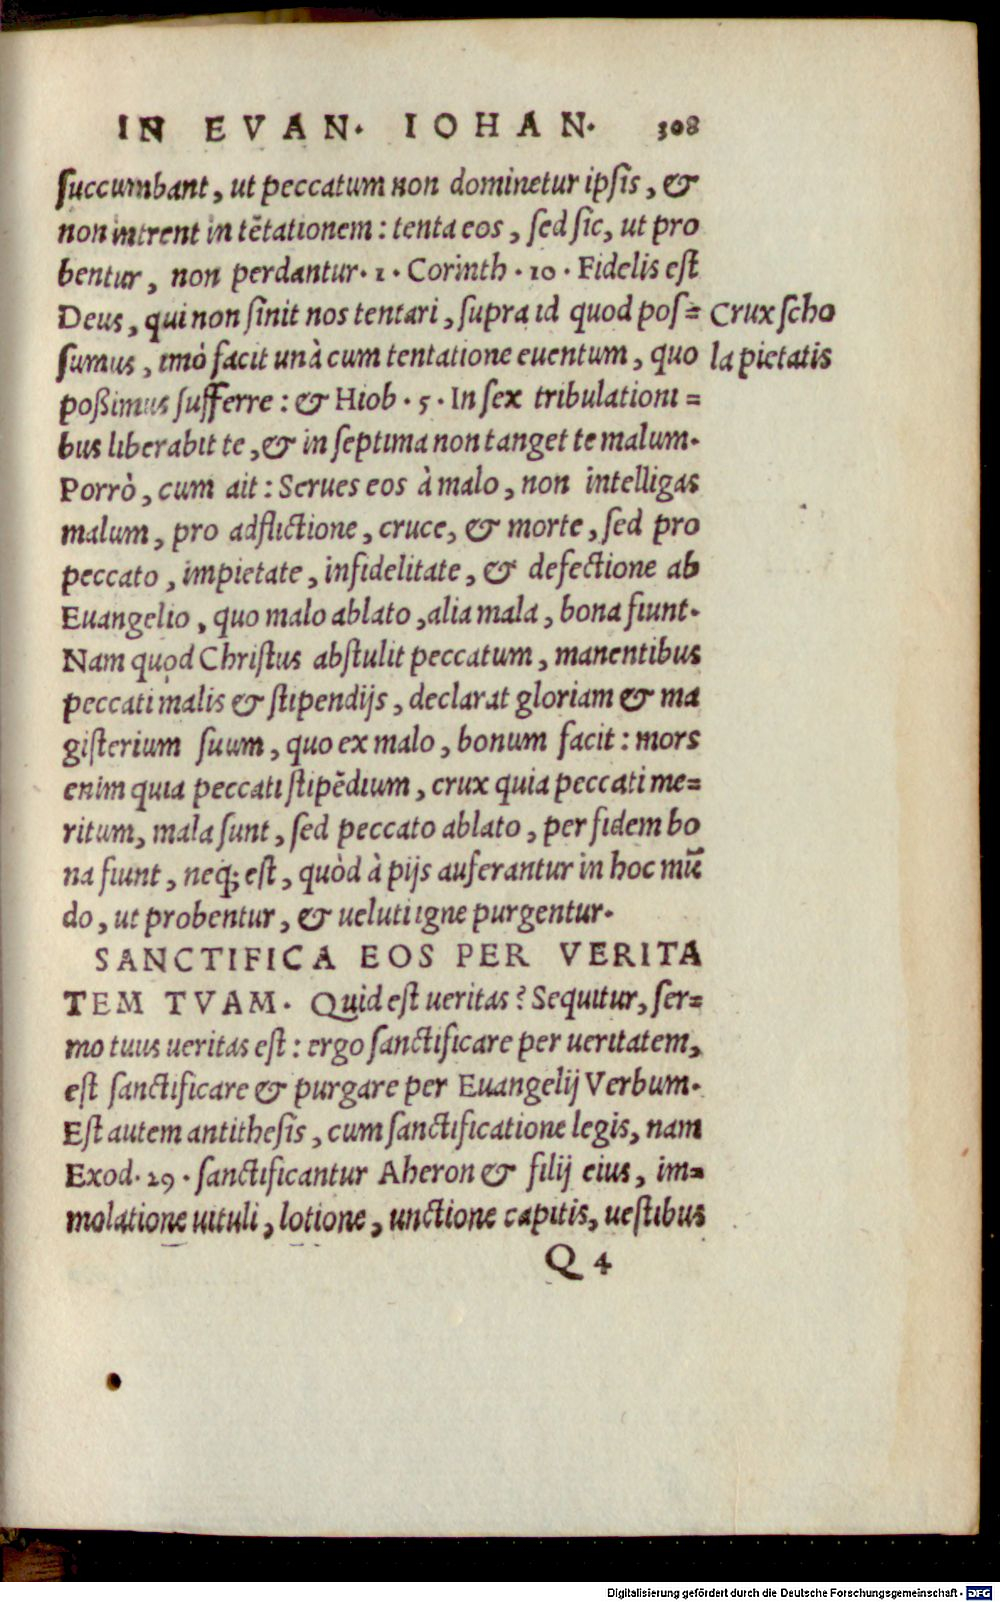 IN EVAN. IOHAN. 308
succumbant, ut peccatum non dominetur ipsis, &
non intrent in tẽtationem: tenta eos, sed sic, ut pro
bentur, non perdantur. 1. Corinth. 10. Fidelis est
Deus, qui non sinit nos tentari, supra id quod pos=
sumus, imò facit unà cum tentatione euentum, quo
poßimus sufferre: & Hiob. 5. In sex tribulationi=
bus liberabit te, & in septima non tanget te malum.
Porrò, cum ait: Serues eos à malo, non intelligas
malum, pro adflictione, cruce, & morte, sed pro
peccato, impietate, infidelitate, & defectione ab
Euangelio, quo malo ablato, alia mala, bona fiunt.
Nam quod Christus abstulit peccatum, manentibus
peccati malis & stipendijs, declarat gloriam & ma
gisterium suum, quo ex malo, bonum facit: mors
enim quia peccati stipẽdium, crux quia peccati me=
ritum, mala sunt, sed peccato ablato, per fidem bo
na fiunt, neq; est, quòd à pijs auferantur in hoc mũ
do, ut probentur, & ueluti igne purgentur.
SANCTIFICA EOS PER VERITA
TEM TVAM. Quid est ueritas? Sequitur, ser=
mo tuus ueritas est: ergo sanctificare per ueritatem,
est sanctificare & purgare per Euangelij Verbum.
Est autem antithesis, cum sanctificatione legis, nam
Exod. 29. sanctificantur Aheron & filij eius, im=
molatione uituli, lotione, unctione capitis, uestibus
Q 4
Crux scho
la pietatis
Digitalisierung gefördert durch die Deutsche Forschungsgemeinschaft - DFG